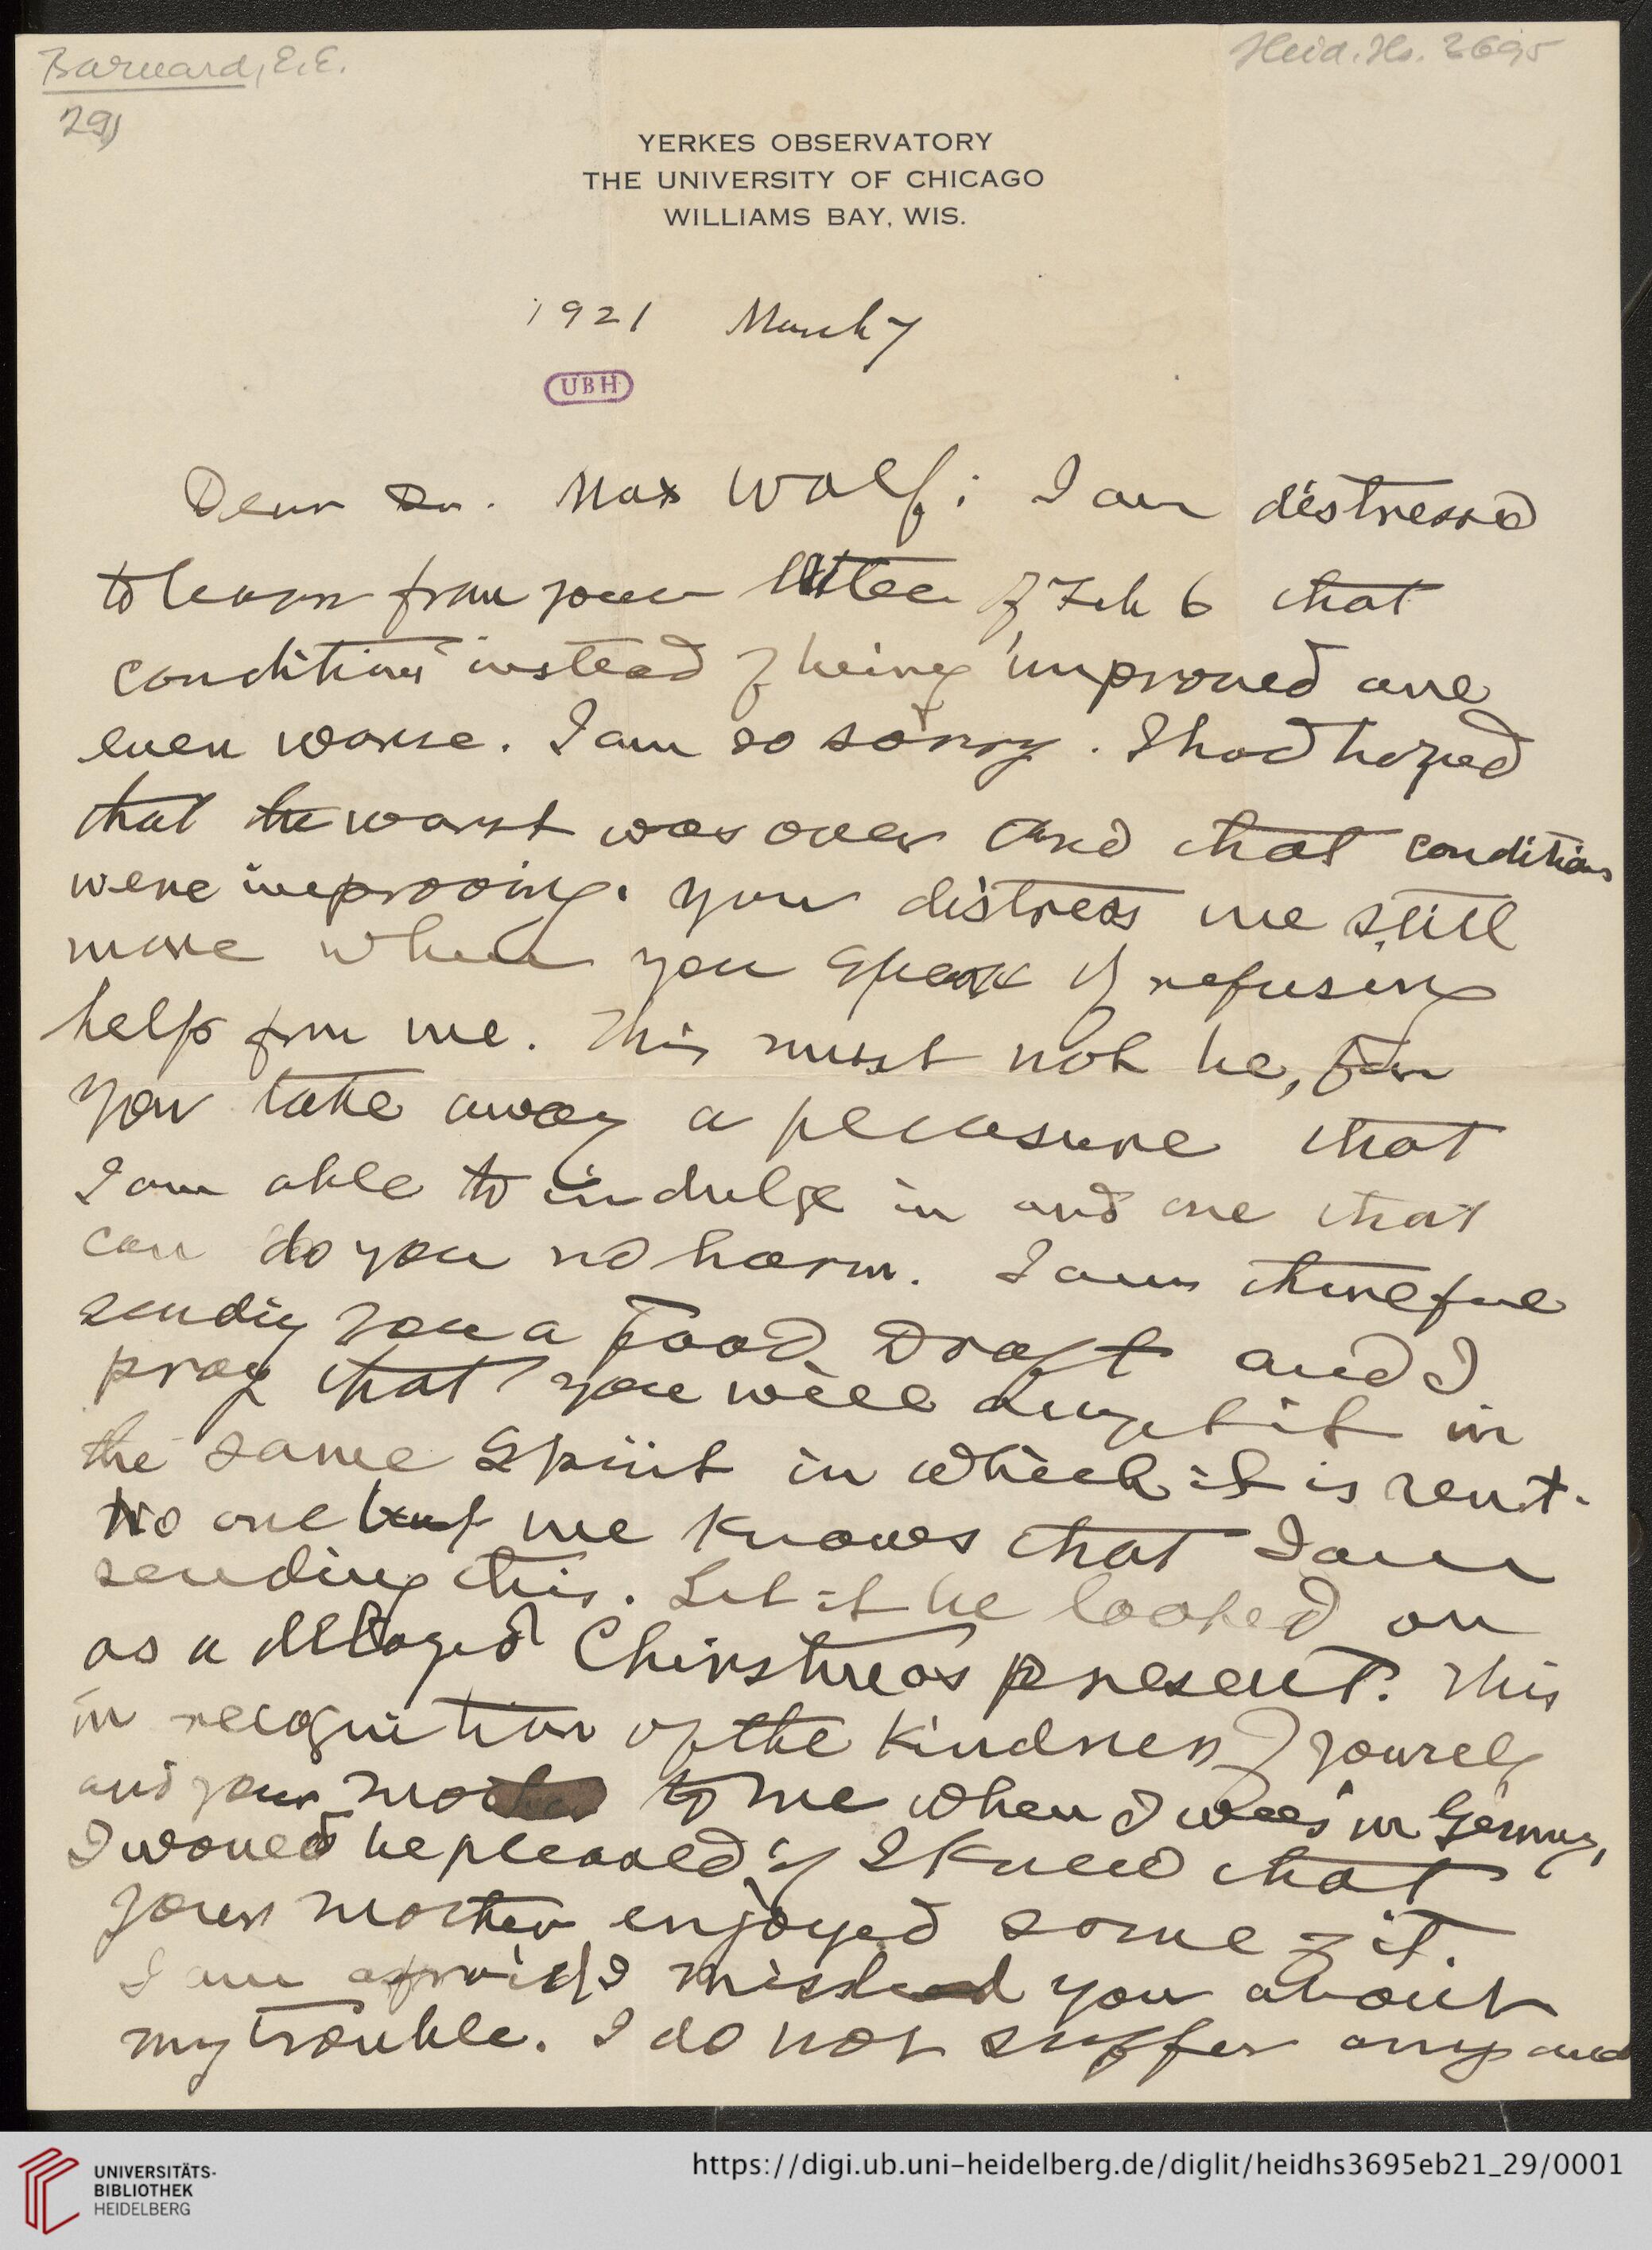 Barnard, E.E.
Heid. Hs. 3695
29)
YERKES OBSERVATORY
THE UNIVERSITY OF CHICAGO
WILLIAMS BAY, WIS.
1921 March 7
UBH
Dear Dr. Max Wolf: I am distressed
to learn from your letter of Feb 6 that
conditions instead of being improved are
even worse. I am so sorry. I had hoped
that the worst was over and that conditions
were improving. You distress me still
more when you speak of refusing
help from me. This must not be, for
you take away a pleasure that
I am able to indulge in and one that
can do you no harm. I am therefore
sending you a Food Draft and I
pray that you will accept it in
the same spirit in which it is sent.
No one but me knows that I am
sending this. Let it be looked on
as a delayed Christmas present. This
in recognition of the kindness of yourself
and your mother to me when I was in Germany,
I would be pleased if I knew that
your mother enjoyed some of it.
I am afraid I mislead you about
my trouble. I do not suffer any and
UNIVERSITÄTS-
BIBLIOTHEK
HEIDELBERG
https://digi.ub.uni-heidelberg.de/diglit/heidhs3695eb21_29/0001